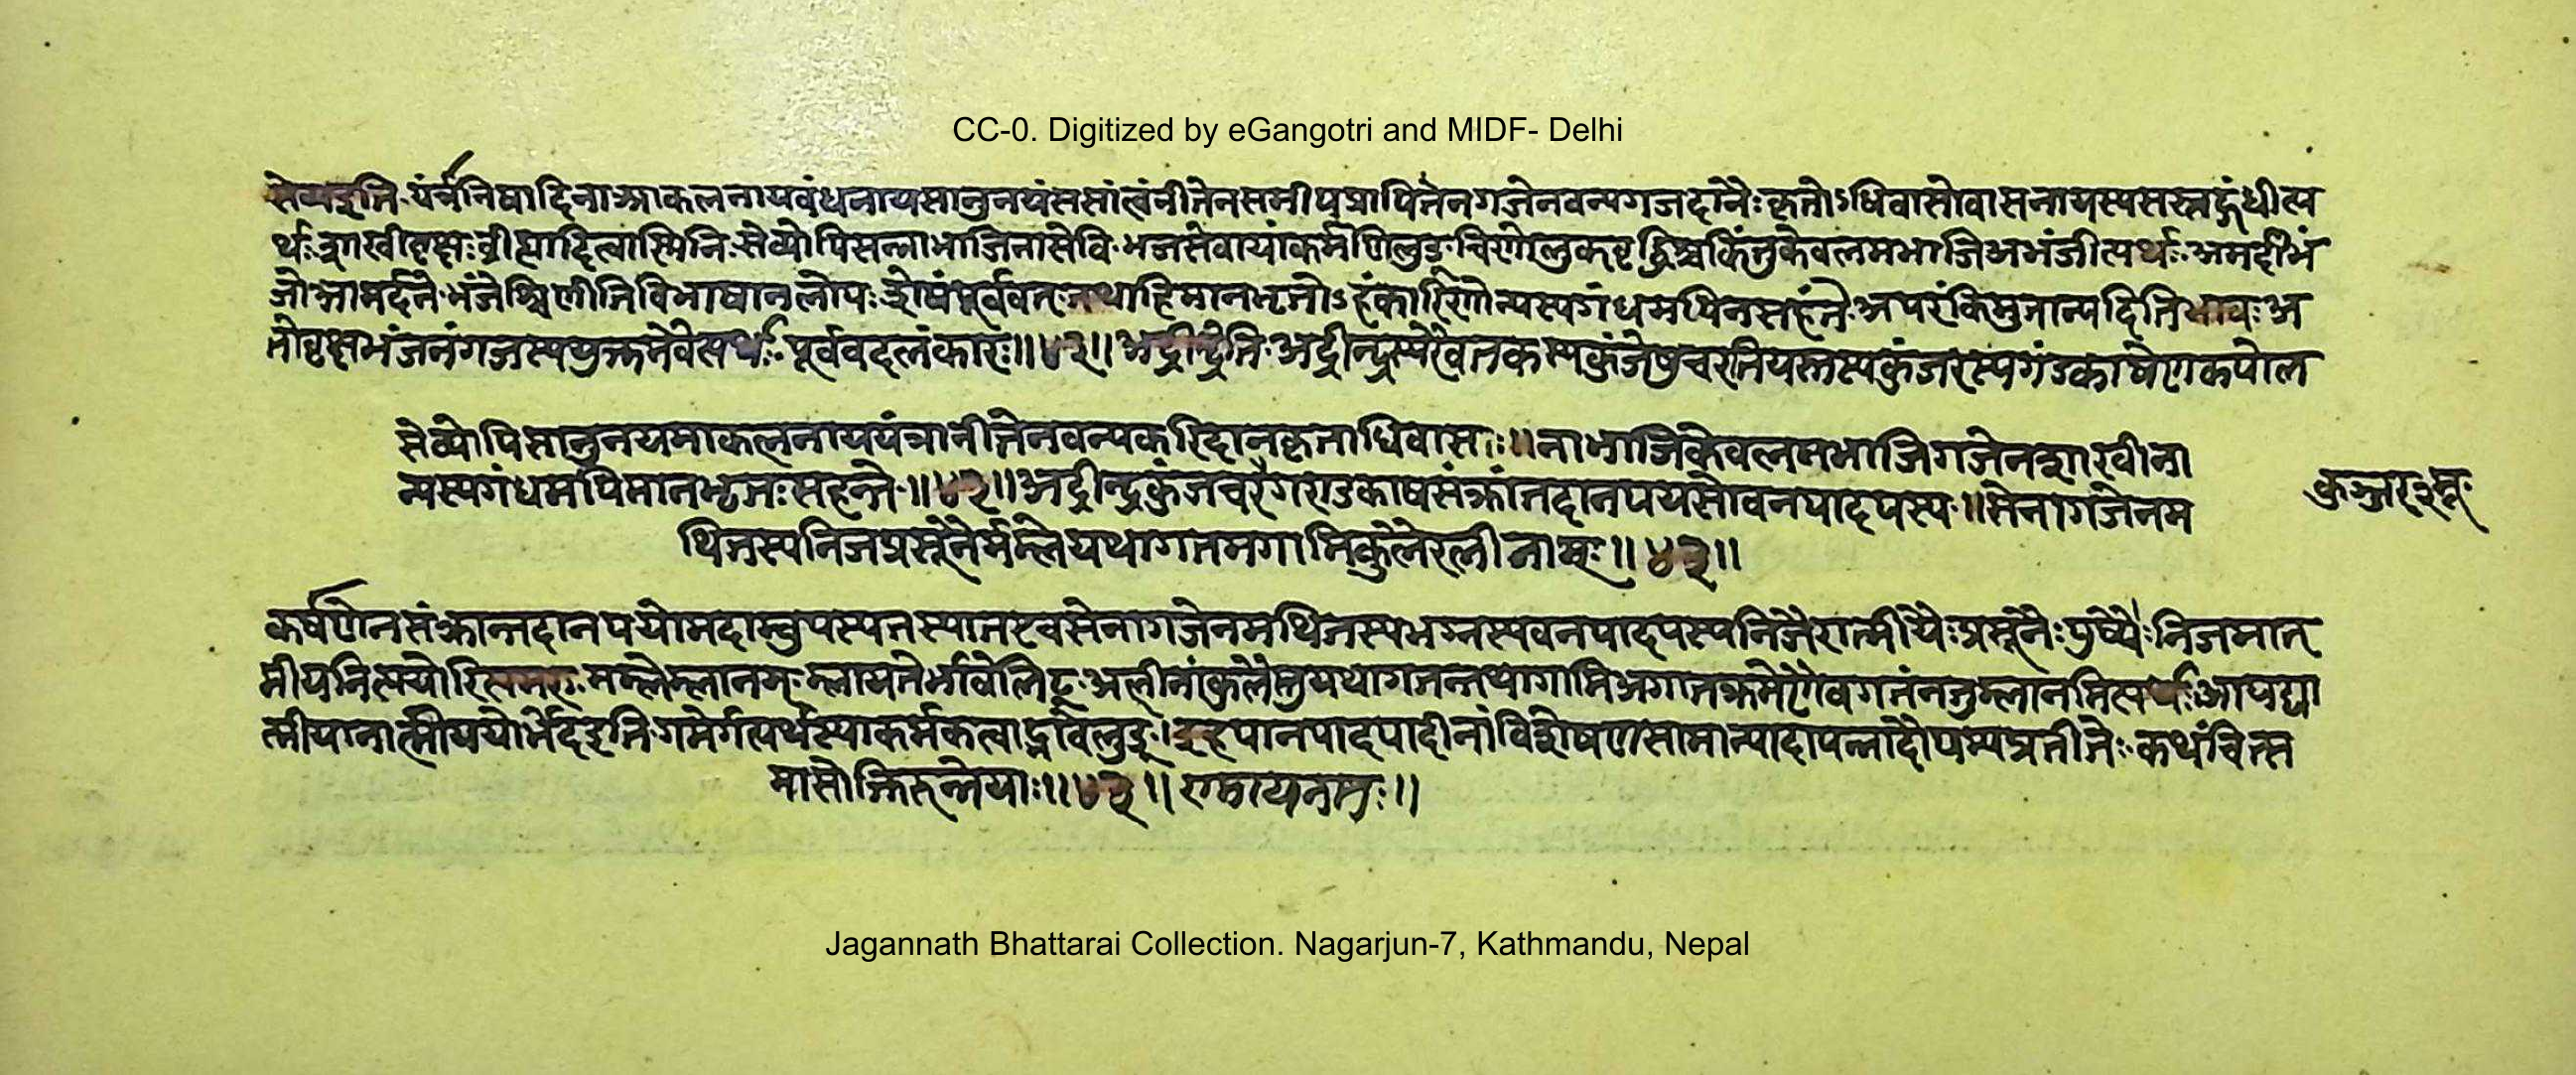 CC-0. Digitized by eGangotri and MIDF- Delhi
सेव्यइति यंत्रनिषादिना आकलनायबंधनायसानुनयंससांत्वंनीतेनसमीपप्रापितेनगजेनवन्यगजदानैः कृतोऽधिवासोवासनायस्यसस्तद्गंधीत्य
र्थः शाखीवृक्षः व्रीह्यादित्वास्मिनि सेव्योपिसन्नाभाजिनासेवि भजसेवायांकर्मणिलुङ् चिणोलुकवृद्धिश्चकिंतुकेवलमभाजिअभंजीत्यर्थः अमर्दीभं
जोआमर्दने भंजेश्चिणीतिविभाषानलोपः शेषंपूर्ववत् तथाहिमानभृतोऽहंकारिणोन्यस्यगंधमपिनसहंते अपरंकिमुतान्यदितिभावः अ
तोवृक्षभंजनंगजस्ययुक्तमेवेत्यर्थः पूर्ववदलंकारः॥४२॥अद्रीन्द्रेति अद्रीन्द्रस्यरैवतकस्यकुंजेषुचरतियस्तस्यकुंजरस्यगंडकाषेणकपोल
सेव्योपिसानुनयमाकलनाययंत्रानीतेनवन्यकरिदानकृताधिवासः॥नाभाजिकेवलमभाजिगजेनशाखीना
न्यस्यगंधमपिमानभृतःसहन्ते॥४२॥अद्रीन्द्रकुंजचरगण्डकाषसंक्रांतदानपयसोवनपादपस्य॥सेनागजेनम
कुञ्जर
थितस्यनिजप्रसूनैर्मम्लेयथागतमगामिकुलैरलीनाम्॥४३॥
कर्षणेनसंक्रान्तदानपयोमदाम्बुयस्यतस्यातएवसेनागजेनमथितस्यभग्नस्यवनपादपस्यनिजैरात्मीयैःप्रसूनैःपुष्पैः निजमात्
मीयनित्ययोरित्यमरः मम्लेम्लानम् म्लायतेर्भावेलिट् अलीनांकुलैस्तुयथागतन्तथागामिअगातक्रमेणैवगतंनतुम्लानमित्यर्थः आपद्या
त्मीयानात्मीययोर्भेदइति गमेर्गत्यर्थस्याकर्मकत्वाद्भावेलुङ् इहपानपादपादीनांविशेषणसामान्यादापन्नादौपम्यप्रतीतेः कथंचित्स
मासोक्तिरुन्नेयाः॥४३॥रामायनमः॥
Jagannath Bhattarai Collection. Nagarjun-7, Kathmandu, Nepal